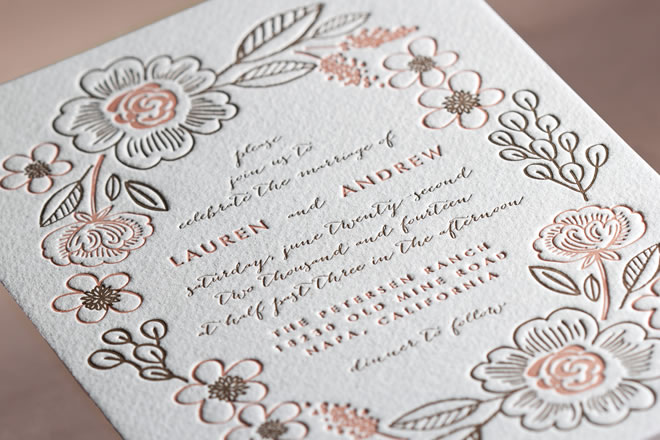 please
join us to
celebrate the marriage of
LAUREN and ANDREW
saturday, june twenty second
two thousand and fourteen
at half past three in the afternoon
THE PETERSEN RANCH
18230 OLD MINE ROAD
NAPA, CALIFORNIA
dinner to follow